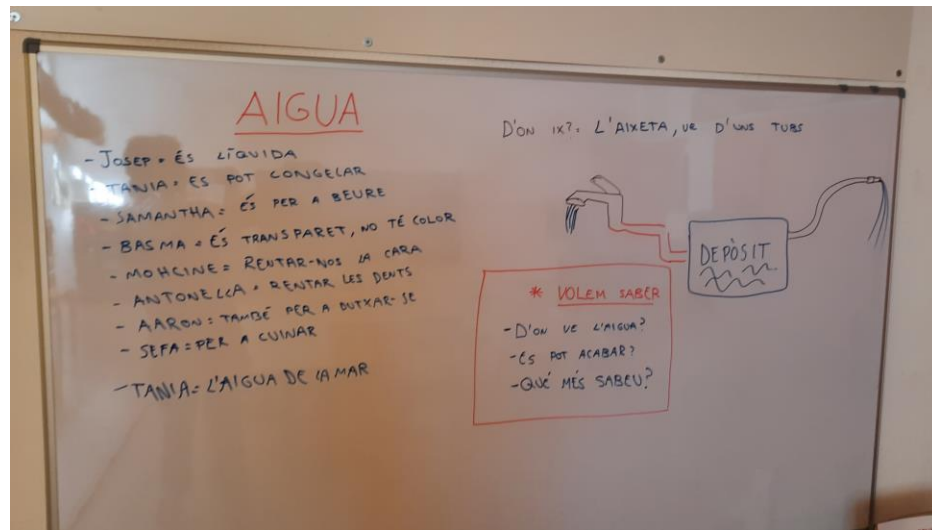 AIGUA
- JOSEP = ÉS LÍQUIDA
- TANIA = ES POT CONGELAR
- SAMANTHA = ÉS PER A BEURE
- BASMA = ÉS TRANSPARET, NO TÉ COLOR
- MOHCINE = RENTAR-NOS LA CARA
- ANTONELLA = RENTAR LES DENTS
- AARON = TAMBÉ PER A DUTXAR-SE
- SEFA = PER A CUINAR
- TANIA = L'AIGUA DE LA MAR
D'ON IX?: L'AIXETA, VE D'UNS TUBS
DEPÒSIT
* VOLEM SABER
- D'ON VE L'AIGUA?
- ES POT ACABAR?
- QUÉ MÉS SABEU?